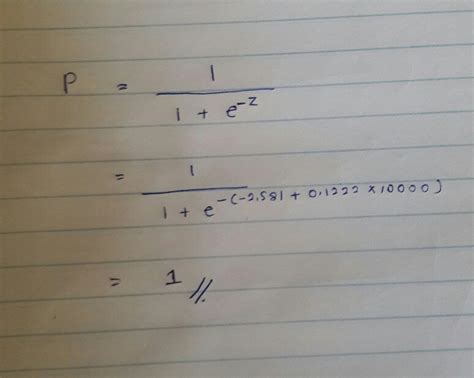 P = 1 / (1 + e^-z)
= 1 / (1 + e^-(-2.581 + 0.1222 × 10000))
= 1 //